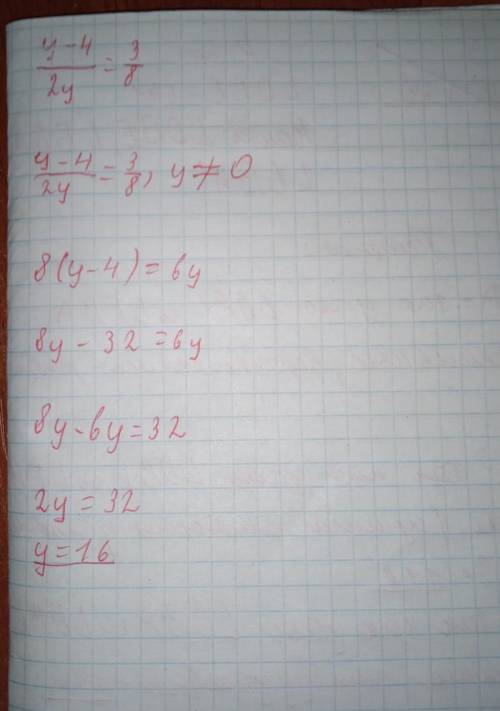 y-4/2y = 3/8
y-4/2y = 3/8, y ≠ 0
8(y-4) = 6y
8y - 32 = 6y
8y - 6y = 32
2y = 32
y = 16